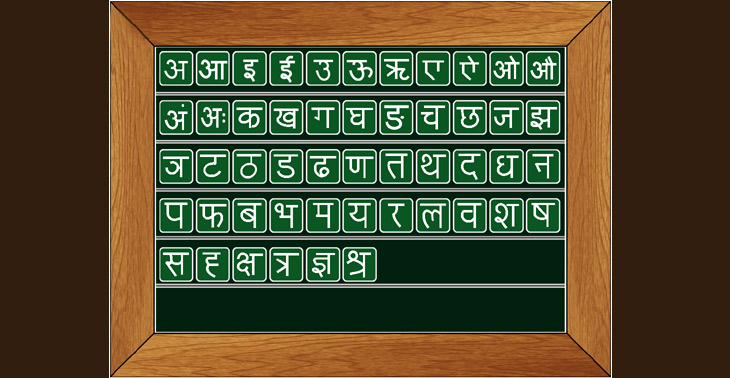 अ आ इ ई उ ऊ ऋ ए ऐ ओ औ
अं अः क ख ग घ ङ च छ ज झ
ञ ट ठ ड ढ ण त थ द ध न
प फ ब भ म य र ल व श ष
स ह क्ष त्र ज्ञ श्र